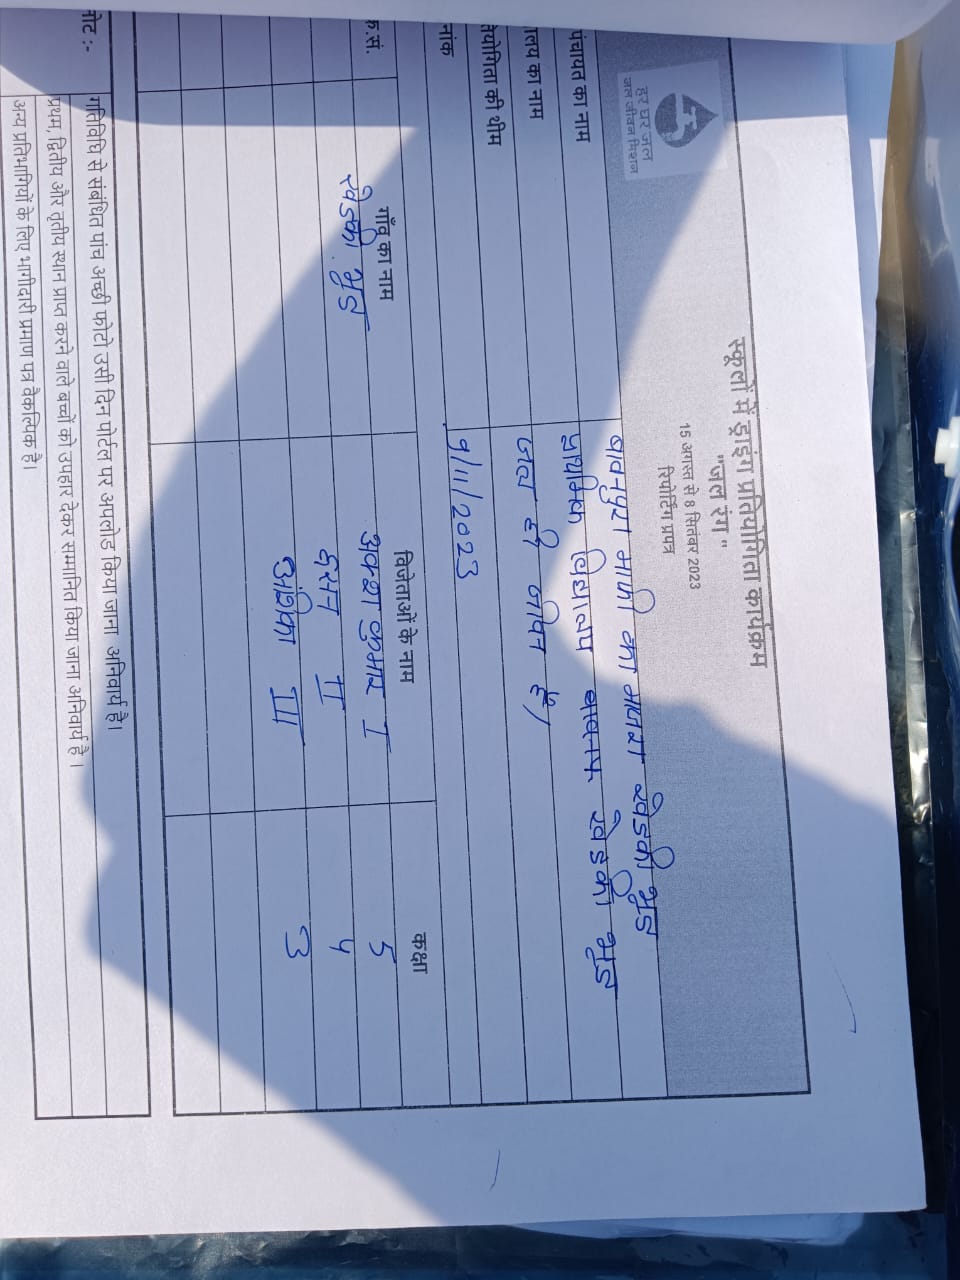 हर घर जल
जल जीवन मिशन
स्कूलों में ड्राइंग प्रतियोगिता कार्यक्रम
"जल रंग"
15 अगस्त से 8 सितंबर 2023
रिपोर्टिंग प्रपत्र
पंचायत का नाम माफी का मजरा खेडकी भुड
लय का नाम प्राथमिक विद्यालय खेडकी भुड
योगिता की थीम जल ही जीवन है
नांक 9/11/2023
क्र.सं. गाँव का नाम विजेताओं के नाम कक्षा
खेडकी भुड कुमार I 5
II 4
अंशिका III 3
नोट :-
गतिविधि से संबंधित पांच अच्छी फोटो उसी दिन पोर्टल पर अपलोड किया जाना अनिवार्य है।
प्रथम, द्वितीय और तृतीय स्थान प्राप्त करने वाले बच्चों को उपहार देकर सम्मानित किया जाना अनिवार्य है।
अन्य प्रतिभागियों के लिए भागीदारी प्रमाण पत्र वैकल्पिक है।